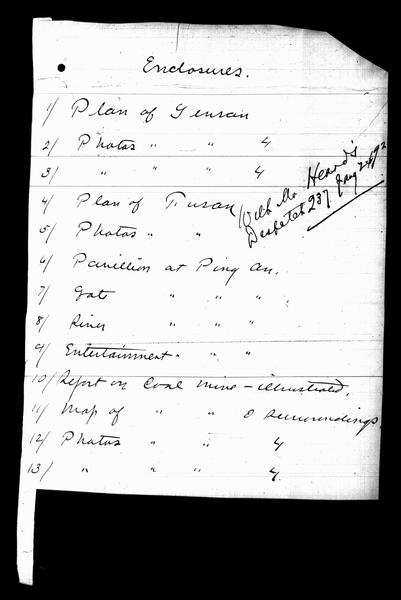 Enclosures.
1/ Plan of Gensan
2/ Photos " " 4
3/ " " " 4
4/ Plan of Fusan
With Mr Heard's
Despatch 237
5/ Photos " "
6/ Pavillion at Ping An.
7/ Gate " " "
8/ River " " "
9/ Entertainment " " "
10/ Report on Coal mine - illustrated.
11/ Map of " " & surroundings.
12/ Photos " " 4
13/ " " " 4